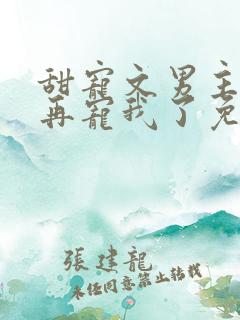 甜寵文男主
再寵我了免
張建龍
未经同意禁止转载